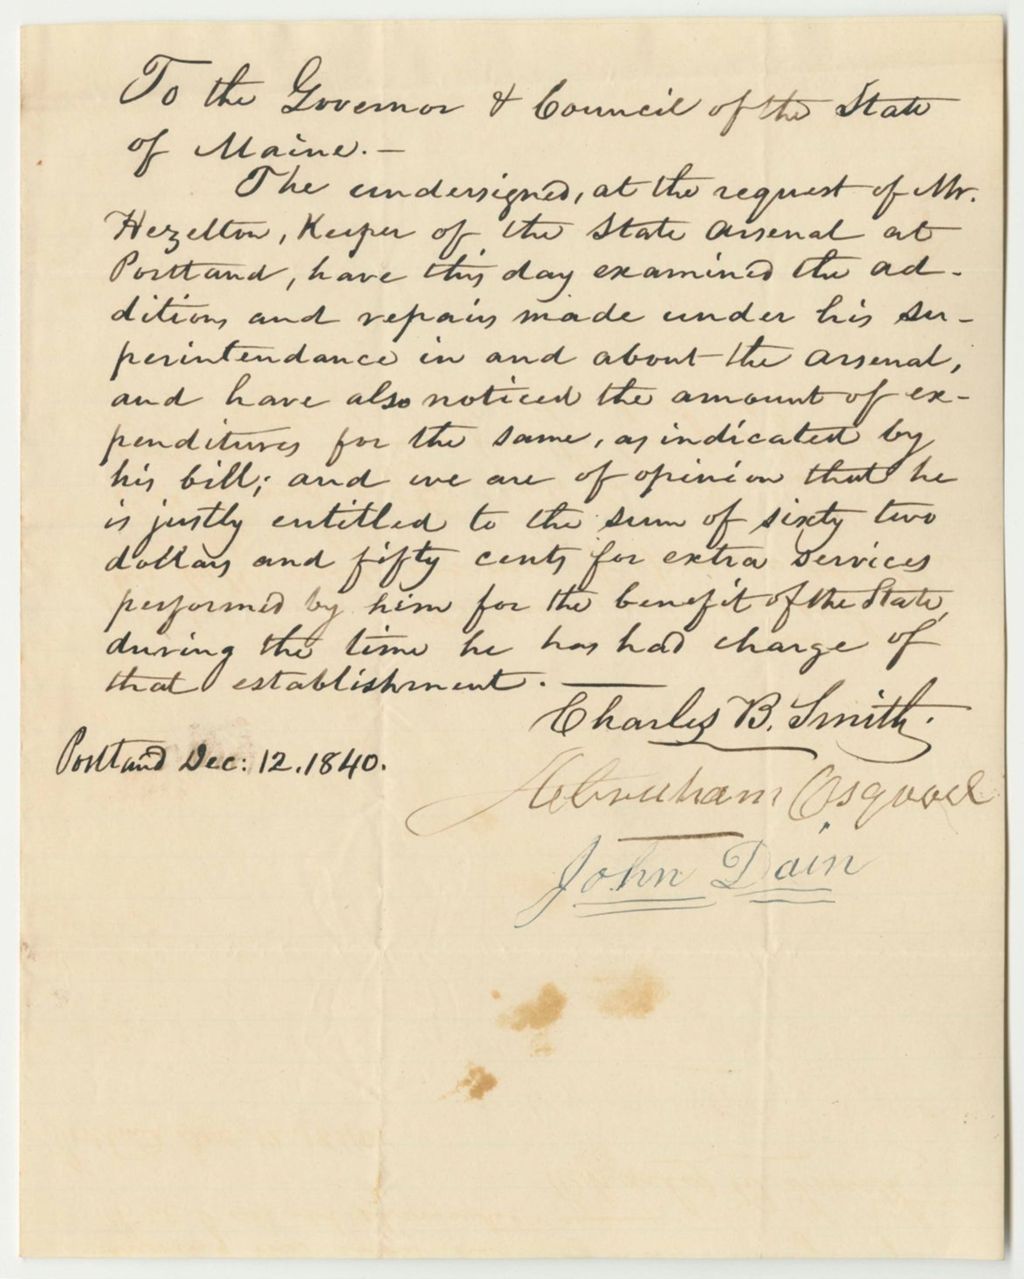 To the Governor & Council of the State
of Maine. —
The undersigned, at the request of Mr.
Hezelton, Keeper of the State Arsenal at
Portland, have this day examined the ad-
ditions and repairs made under his su-
perintendance in and about the arsenal,
and have also noticed the amount of ex-
penditures for the same, as indicated by
his bill; and we are of opinion that he
is justly entitled to the sum of sixty two
dollars and fifty cents for extra services
performed by him for the benefit of the State,
during the time he has had charge of
that establishment. —
Charles B. Smith.
Portland Dec: 12. 1840.
Abraham Osgood
John Dain